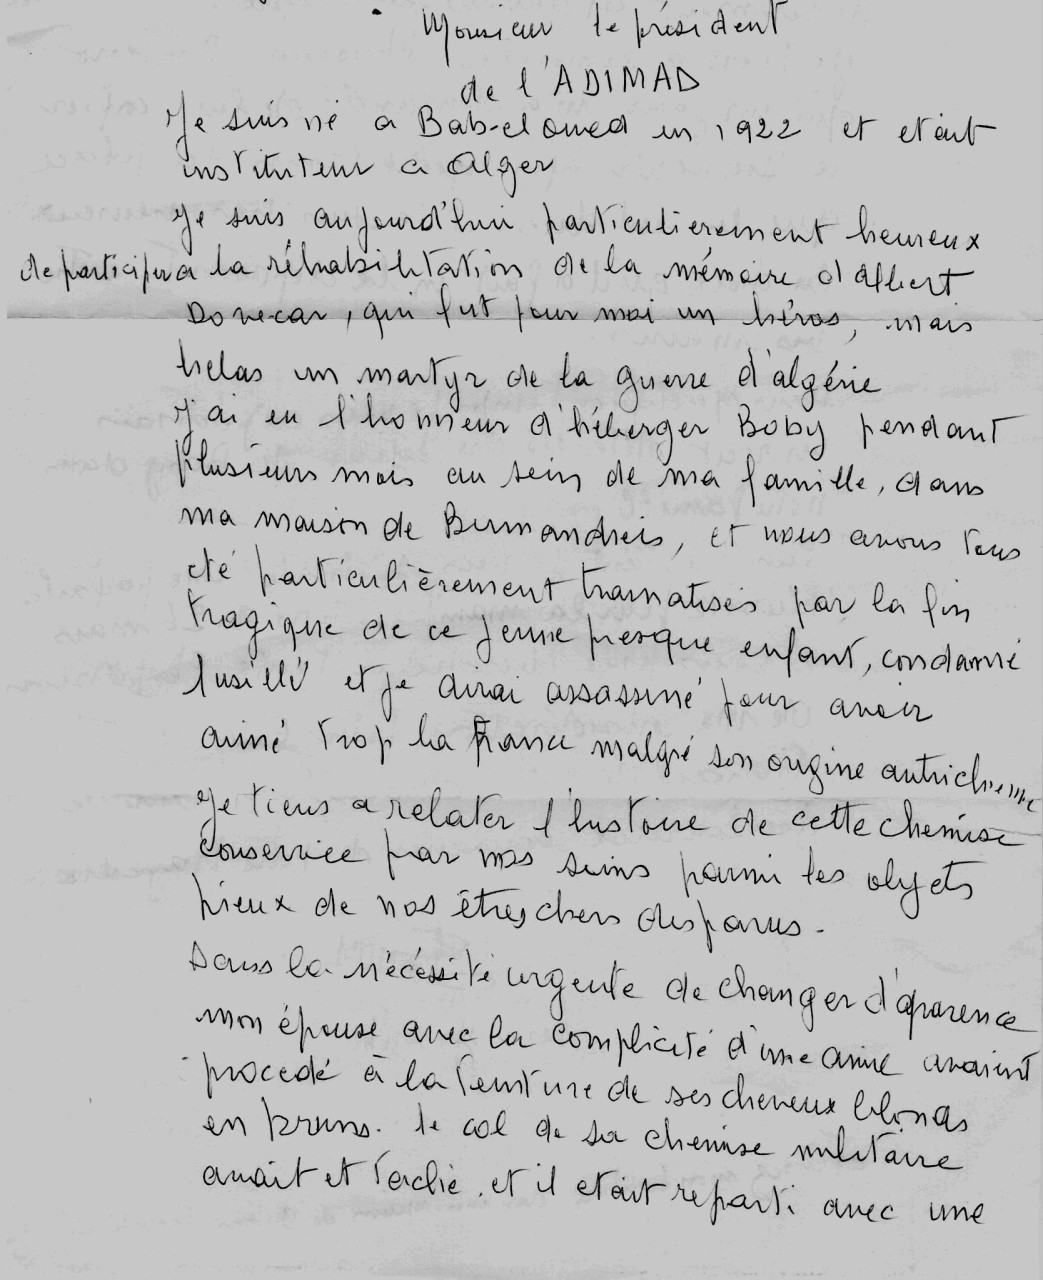 Monsieur le président
de l'ADIMAD
Je suis né a Bab-el oued en 1922 et etait
instituteur a Alger
Je suis aujourd'hui particulierement heureux
de participer a la réhabilitation de la mémoire d'Albert
Dovecar, qui fut pour moi un héros, mais
helas un martyr de la guerre d'algérie
J'ai eu l'honneur d'héberger Boby pendant
plusieurs mois au sein de ma famille, dans
ma maison de Birmandreis, et nous avons tous
été particulièrement tramatisés par la fin
tragique de ce jeune presque enfant, condamné
fusillé et je dirai assassiné pour avoir
aimé trop la France malgré son origine autrichienne
Je tiens a relater l'histoire de cette chemise
conservée par nos soins parmi les objets
pieux de nos êtres chers disparus.
Dans la nécéssité urgente de changer d'aparence
mon épouse avec la complicité d'une amie avaient
procedé à la teinture de ses cheveux blonds
en bruns. le col de sa chemise militaire
avait et taché. et il etait reparti avec une